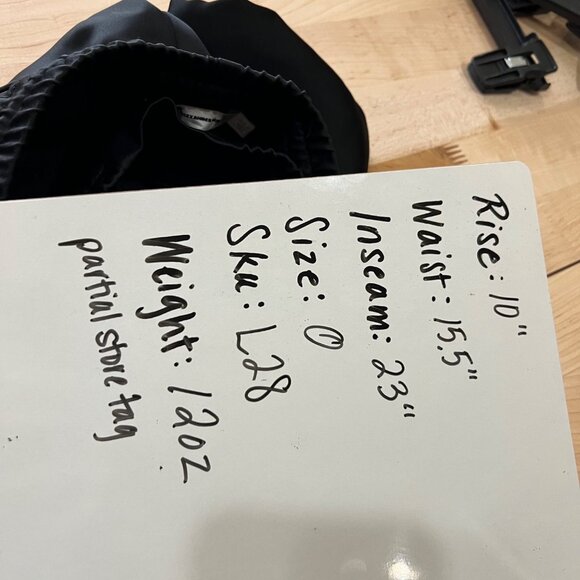 Rise: 10"
Waist: 15.5"
Inseam: 23"
Size: 0
Sku: L28
Weight: 12oz
partial store tag